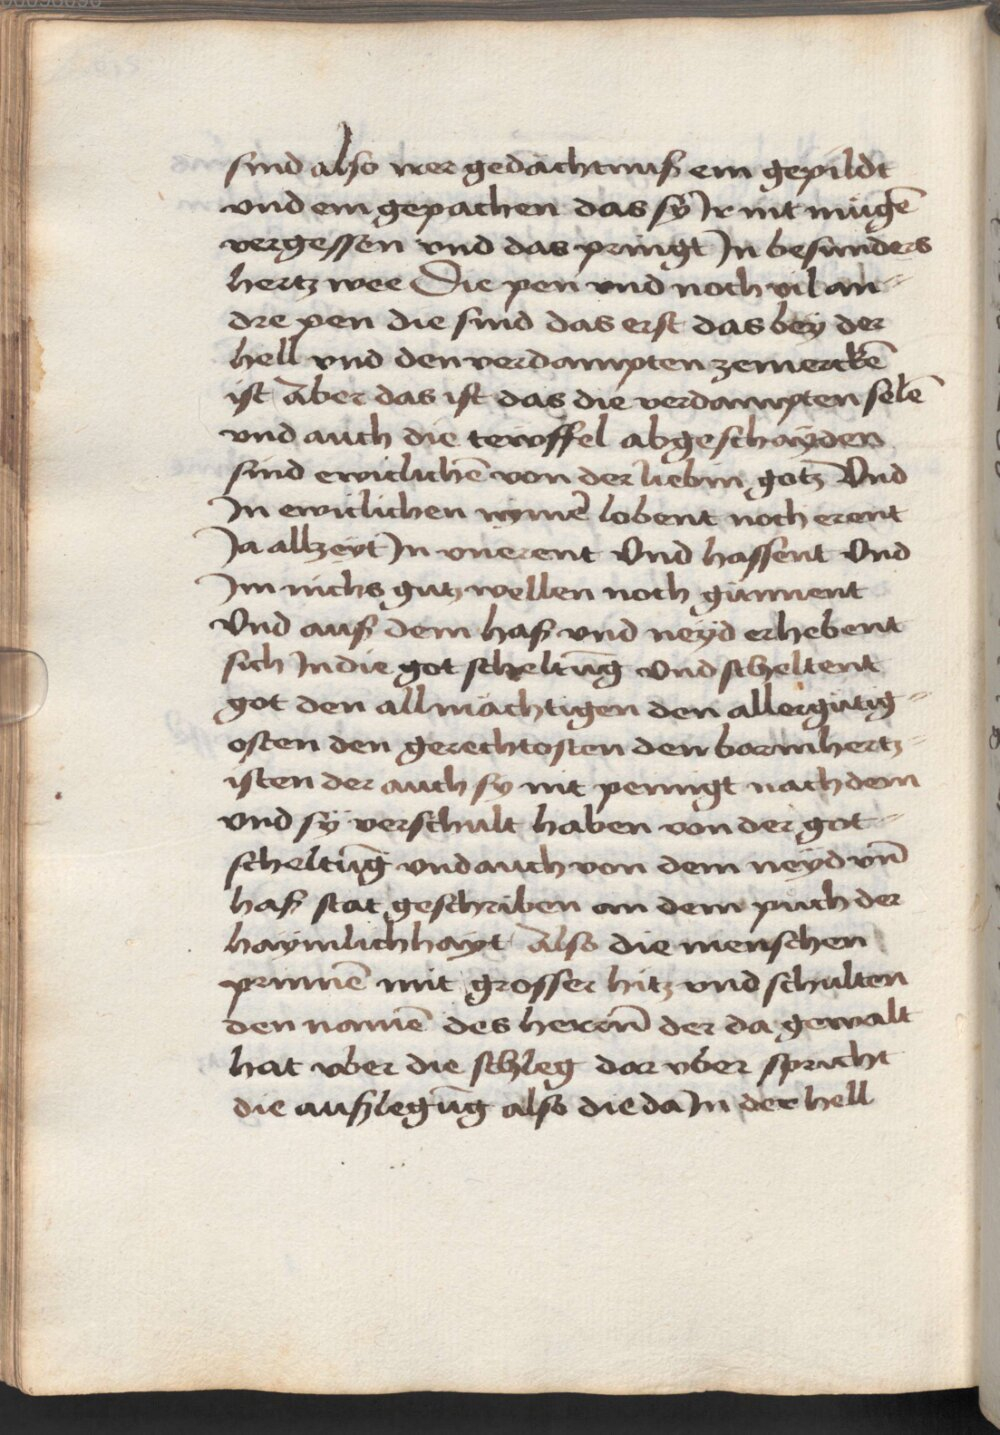 sind also irer gedächtnuß ein gepildt
vnd ein gepachen das sÿ Ir nit mügē
vergessen vnd das pringt In besunders
hertz wee Die pen vnd noch vil an-
dre pen die sind das erst das beÿ der
hell vnd den verdampten zemerckē
ist Aber das ist das die verdampten selē
vnd auch die tewffel abgeschayden
sind ewiclichē von der liebin gotz Vnd
In ewiclichen nÿmē lobent noch erent
Ja allzeyt In vnerent Vnd hassent Vnd
Im nichs gutz wellen noch günnent
Vnd auß dem haß vnd neyd erhebent
sich In die got scheltūg Vnd scheltent
got den allmächtigen den allergütig-
osten den gerechtosten den barmhertz-
isten der auch sy nit peinigt nach dem
vnd sÿ verschult haben von der got-
scheltūg vnd auch von dem neyd vn̄
haß stat geschriben an dem puch der
haymlichhayt Also die menschen
prinnē mit grosser hitz vnd schulten
den namē des heren̄ der da gewalt
hat vber die schleg dar vber spricht
die außlegūg also die da In der hell